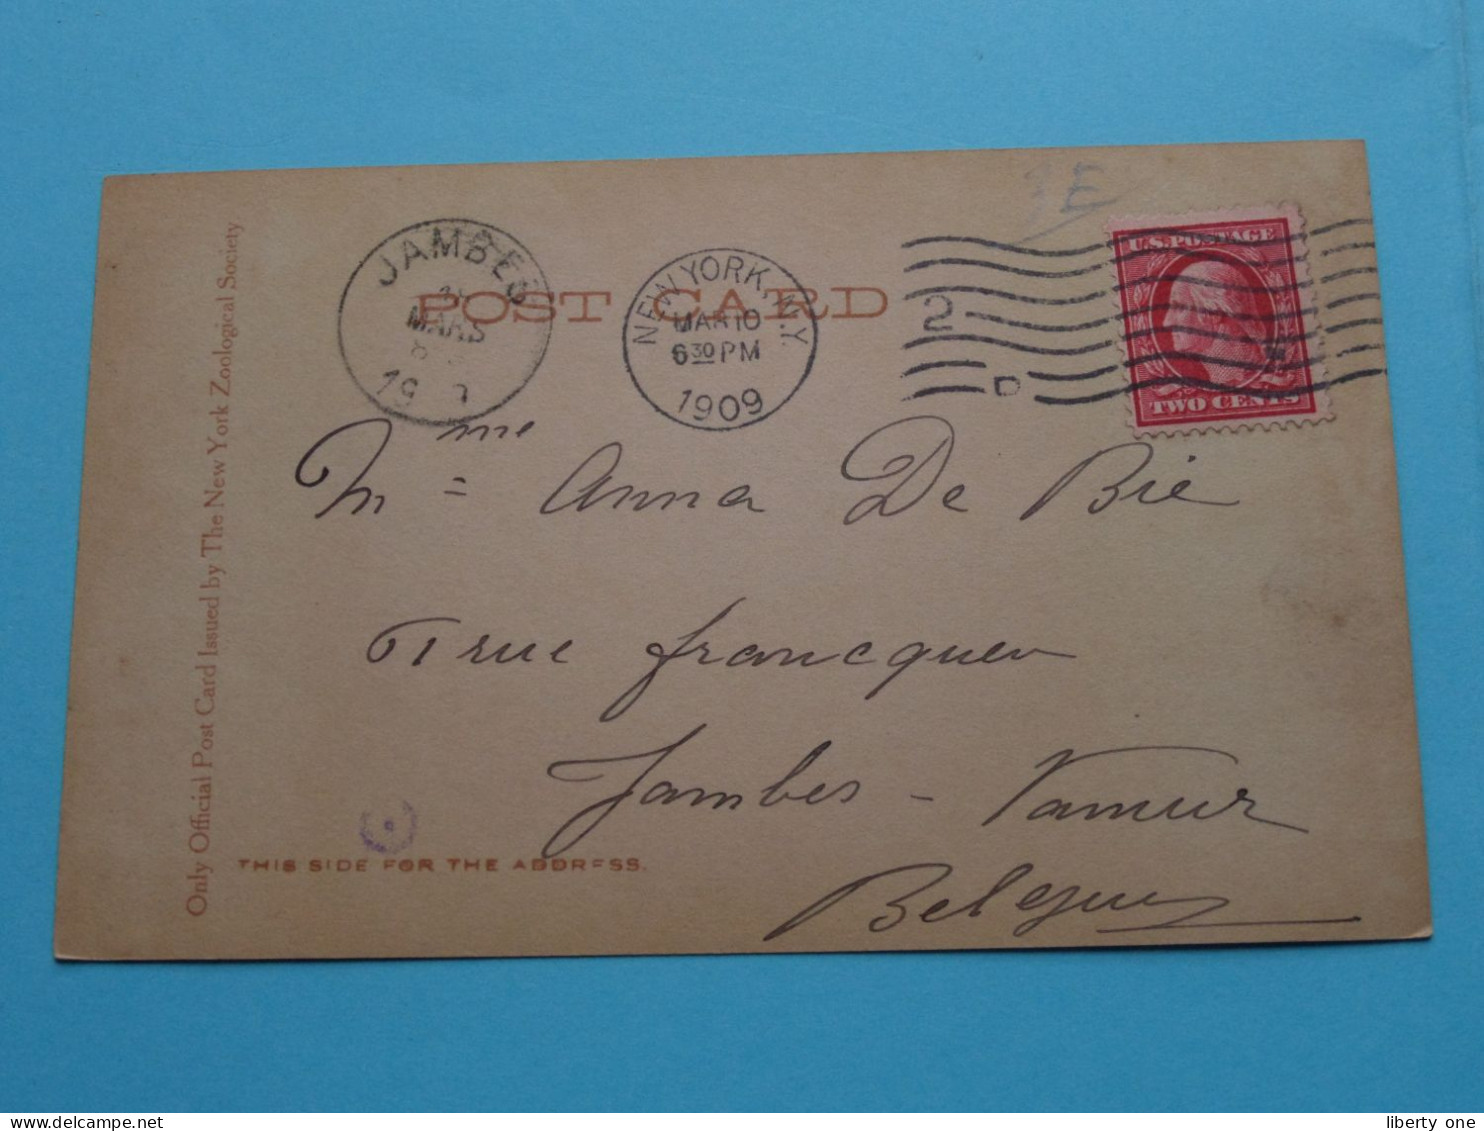 JAMBES
MARS
19
POST CARD
NEW YORK, N.Y.
MAR 10
6 30 PM
1909
2
D
U.S. POSTAGE
TWO CENTS
Mme Anna De Bie
rue francquen
Jambes - Namur
Belgique
THIS SIDE FOR THE ADDRESS.
Only Official Post Card Issued by The New York Zoological Society
liberty one